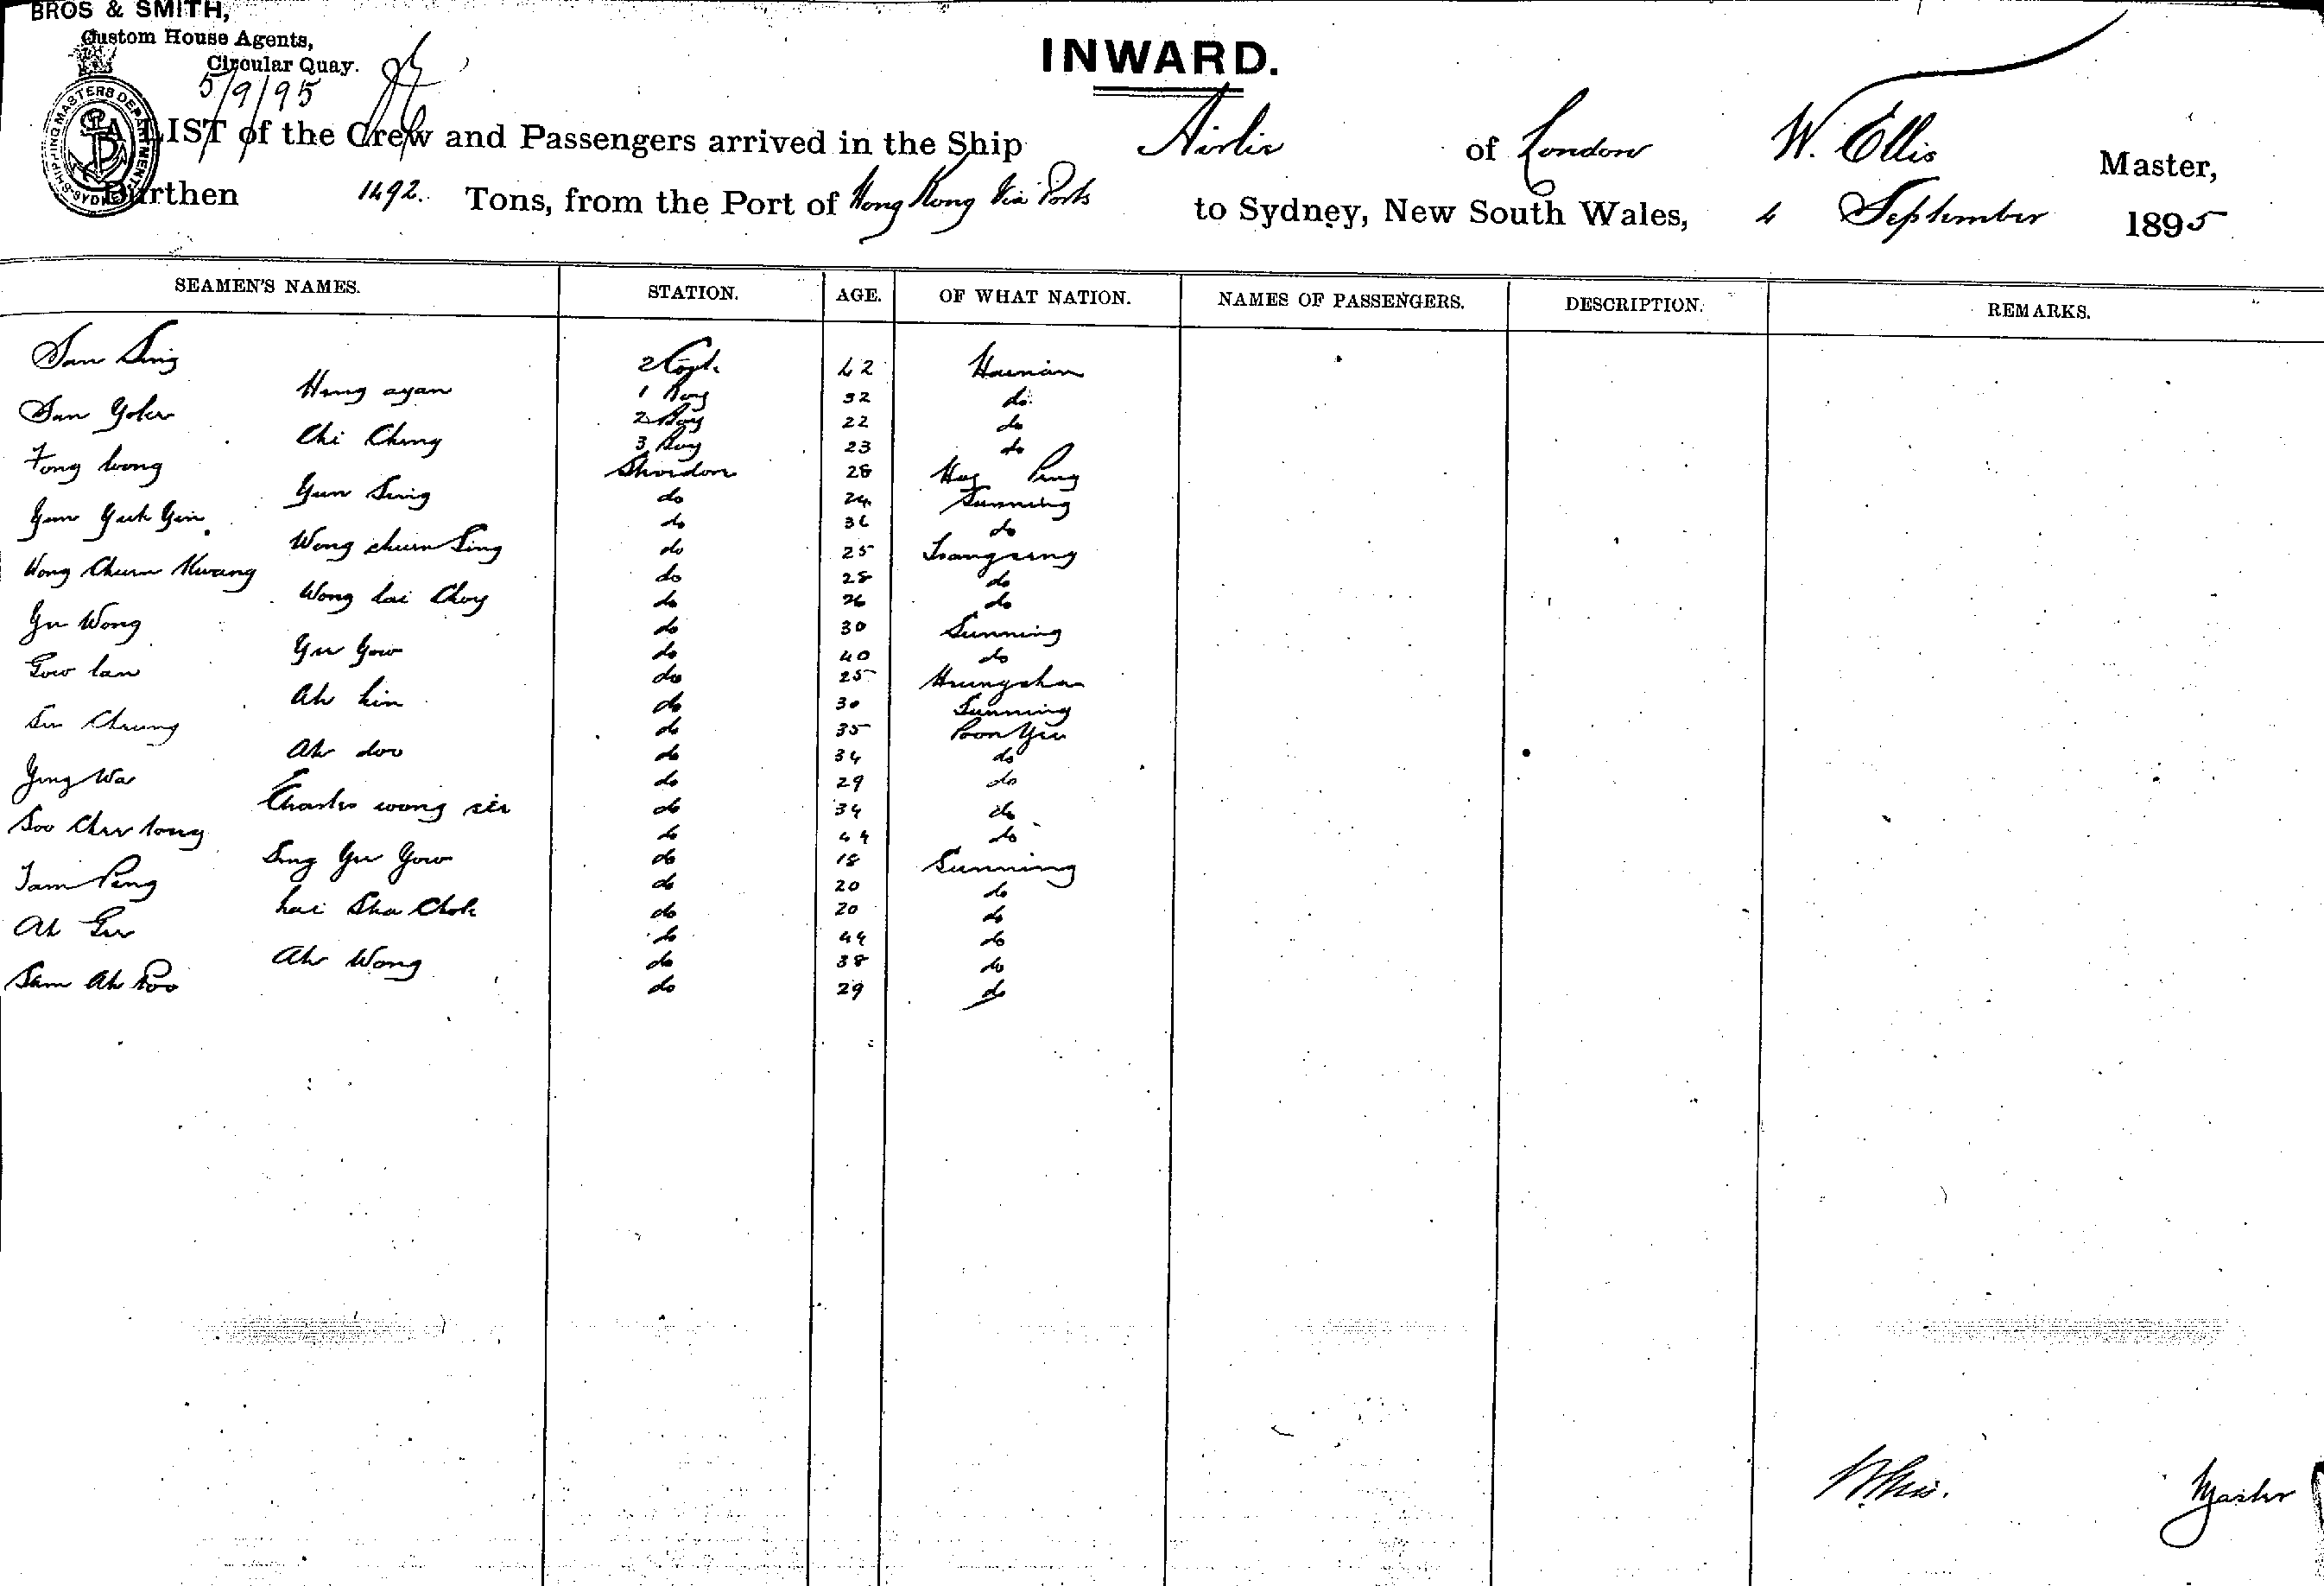 BROS & SMITH,
Custom House Agents,
Circular Quay.
5/9/95
INWARD.
SHIPPING MASTERS DEPARTMENT SYDNEY
A LIST of the Crew and Passengers arrived in the Ship Airlie of London W. Ellis Master,
Burthen 1492 Tons, from the Port of Hong Kong Via Ports to Sydney, New South Wales, 4 September 1895
SEAMEN'S NAMES. STATION. AGE. OF WHAT NATION. NAMES OF PASSENGERS. DESCRIPTION. REMARKS.
San Sing 2 Cook 42 Hainan
Hong ayan 1 Boy 32 do
San Yoker 2 Boy 22 do
Chi Ching 3 Boy 23 do
Fong long 28 Ping
Yun Sing do 24 Sunning
Yum Yuk Yin do 36 do
Wong chun Sing do 25 Tsangseng
Wong Chun Kwang do 28 do
Wong lai Choy do 26 do
Yu Wong do 30 Sunning
Yu Yow do 40 do
Gow lan do 25 Heungshan
Ah hin do 30 Sunning
Su Cheung do 35 Poon Yu
Ah doo do 34 do
Ying Wa do 29 do
Charles wong sir do 34 do
Soo Chee tong do 44 do
Sing Yu Yow do 18 Sunning
Tam Ping do 20 do
hai Sha Chok do 20 do
Ah Gee do 44 do
Ah Wong do 38 do
Sam Ah Poo do 29 do
W. Ellis. Master